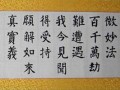 微妙法
百千萬劫
難遭遇
我今見聞
得受持
願解如來
真實義